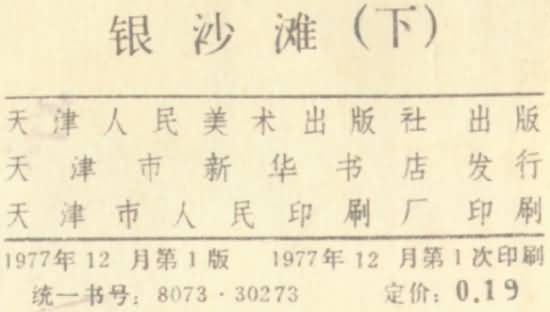 银沙滩(下)
天津人民美术出版社 出版
天津市新华书店发行
天津市人民印刷厂 印刷
1977年12月第1版 1977年12月第1次印刷
统一书号：8073·30273 定价：0.19